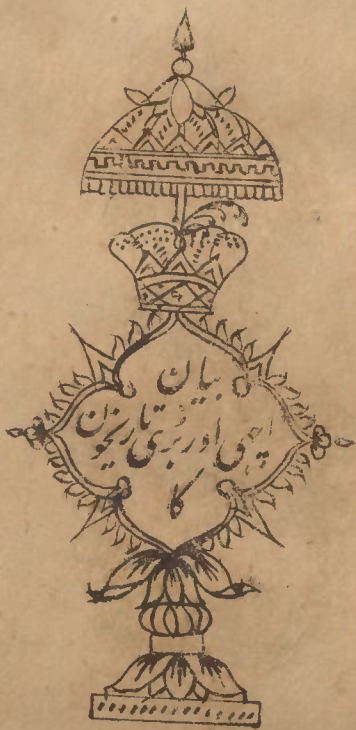 بیان
اچھی اور بُری تاریخون
کا